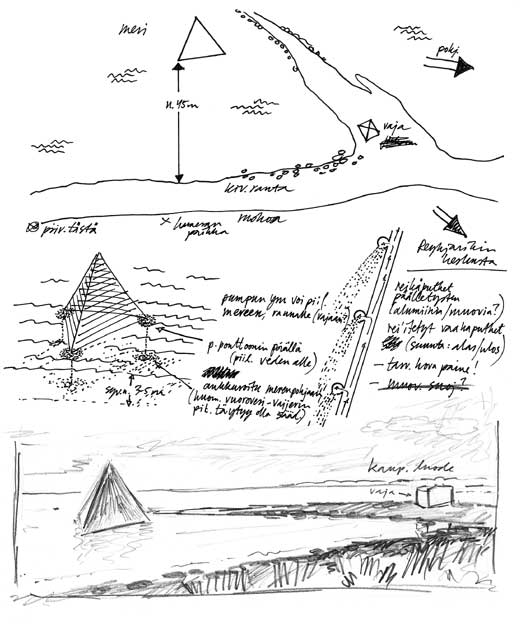 meri
pohj.
n. 45 m
vaja
kiv. ranta
piir. tästä
x kameran paikka
Reykjavikin
keskusta
pumpun ym voi pi.
mereen, rannalle (vajaan?)
p. ponttoonin päällä
(piil. veden alle)
ankkuroitu merenpohjaan
(huom. vuorovesi-vaijerin
pit. täytyy olla sääd.)
syv. 2-5 m
reikäputket
päälletysten
(alumiinia/muovia?)
rei'itetyt vaakaputket
(suunta: alas/ulos)
- tarv. kova paine!
- muov. suoj?
kaup. luode
vaja